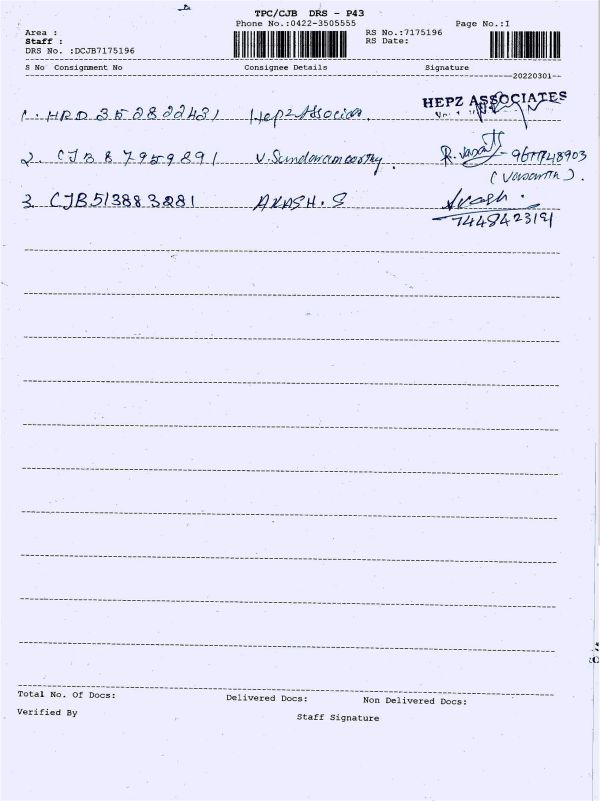 TPC/CJB DRS - P43
Phone No.:0422-3505555 Page No.:1
Area : RS No.:7175196
Staff : RS Date:
DRS No. :DCJB7175196
S No Consignment No Consignee Details Signature
20220301
1. HRD 352822431 Hepz Associa HEPZ ASSOCIATES
2. CJB 87959891 V. Sundaramoorthy. R. Vasanth - 9677748903
(Vasanth).
3. CJB513883281 AKASH. S Akash.
7448423191
Total No. Of Docs: Delivered Docs: Non Delivered Docs:
Verified By Staff Signature